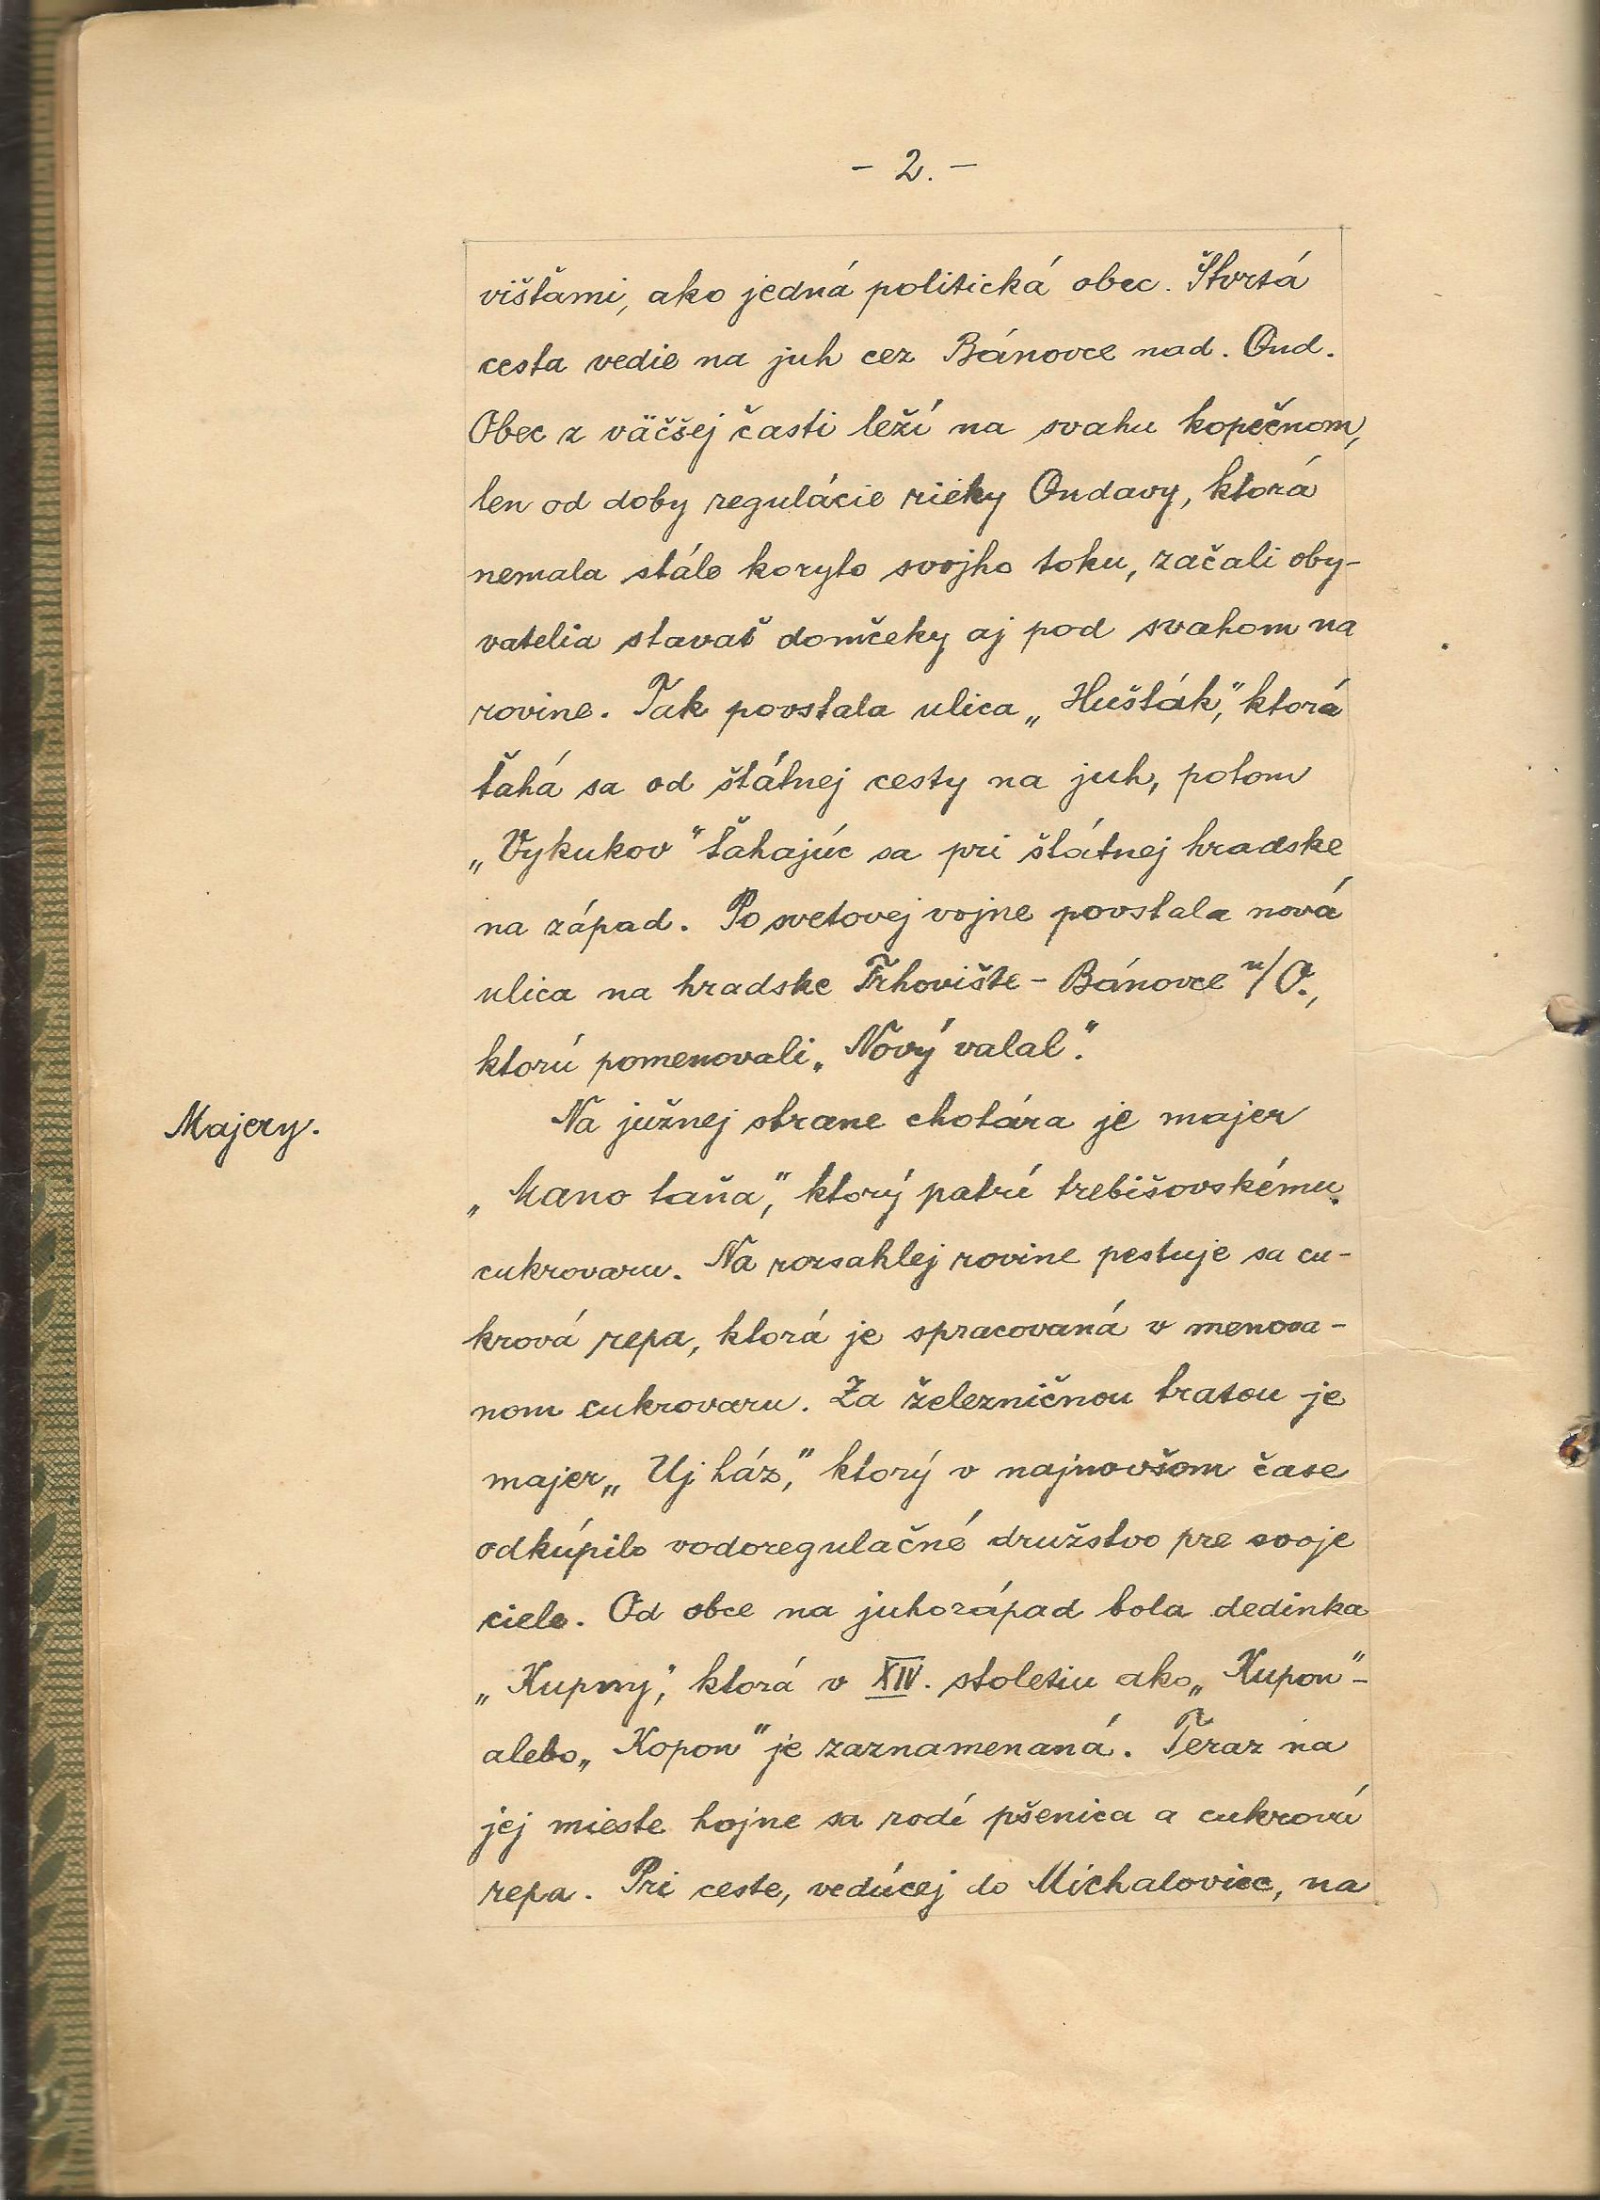 - 2. -
višťami, ako jedná politická obec. Štvrtá
cesta vedie na juh cez Bánovce nad. Ond.
Obec z väčšej časti leží na svahu kopečnom,
len od doby regulácie rieky Ondavy, ktorá
nemala stále koryto svojho toku, začali oby-
vatelia stavať domčeky aj pod svahom na
rovine. Tak povstala ulica „Hušták", ktorá
ťahá sa od štátnej cesty na juh, potom
„Vykukov" ťahajúc sa pri štátnej hradske
na západ. Po svetovej vojne povstala nová
ulica na hradske Trhovište - Bánovce n/O.,
ktorú pomenovali „Nový valal".
Majery.
Na južnej strane chotára je majer
„Mano taňa", ktorý patrí trebišovskému
cukrovaru. Na rozsahlej rovine pestuje sa cu-
krová repa, ktorá je spracovaná v menova-
nom cukrovaru. Za železničnou tratou je
majer „Uj ház", ktorý v najnovšom čase
odkúpilo vodoregulačné družstvo pre svoje
ciele. Od obce na juhozápad bola dedinka
„Kupny", ktorá v XIV. stoletiu ako „Kupon"-
alebo „Kopon" je zaznamenaná. Teraz na
jej mieste hojne sa rodí pšenica a cukrová
repa. Pri ceste, vedúcej do Michaloviec, na